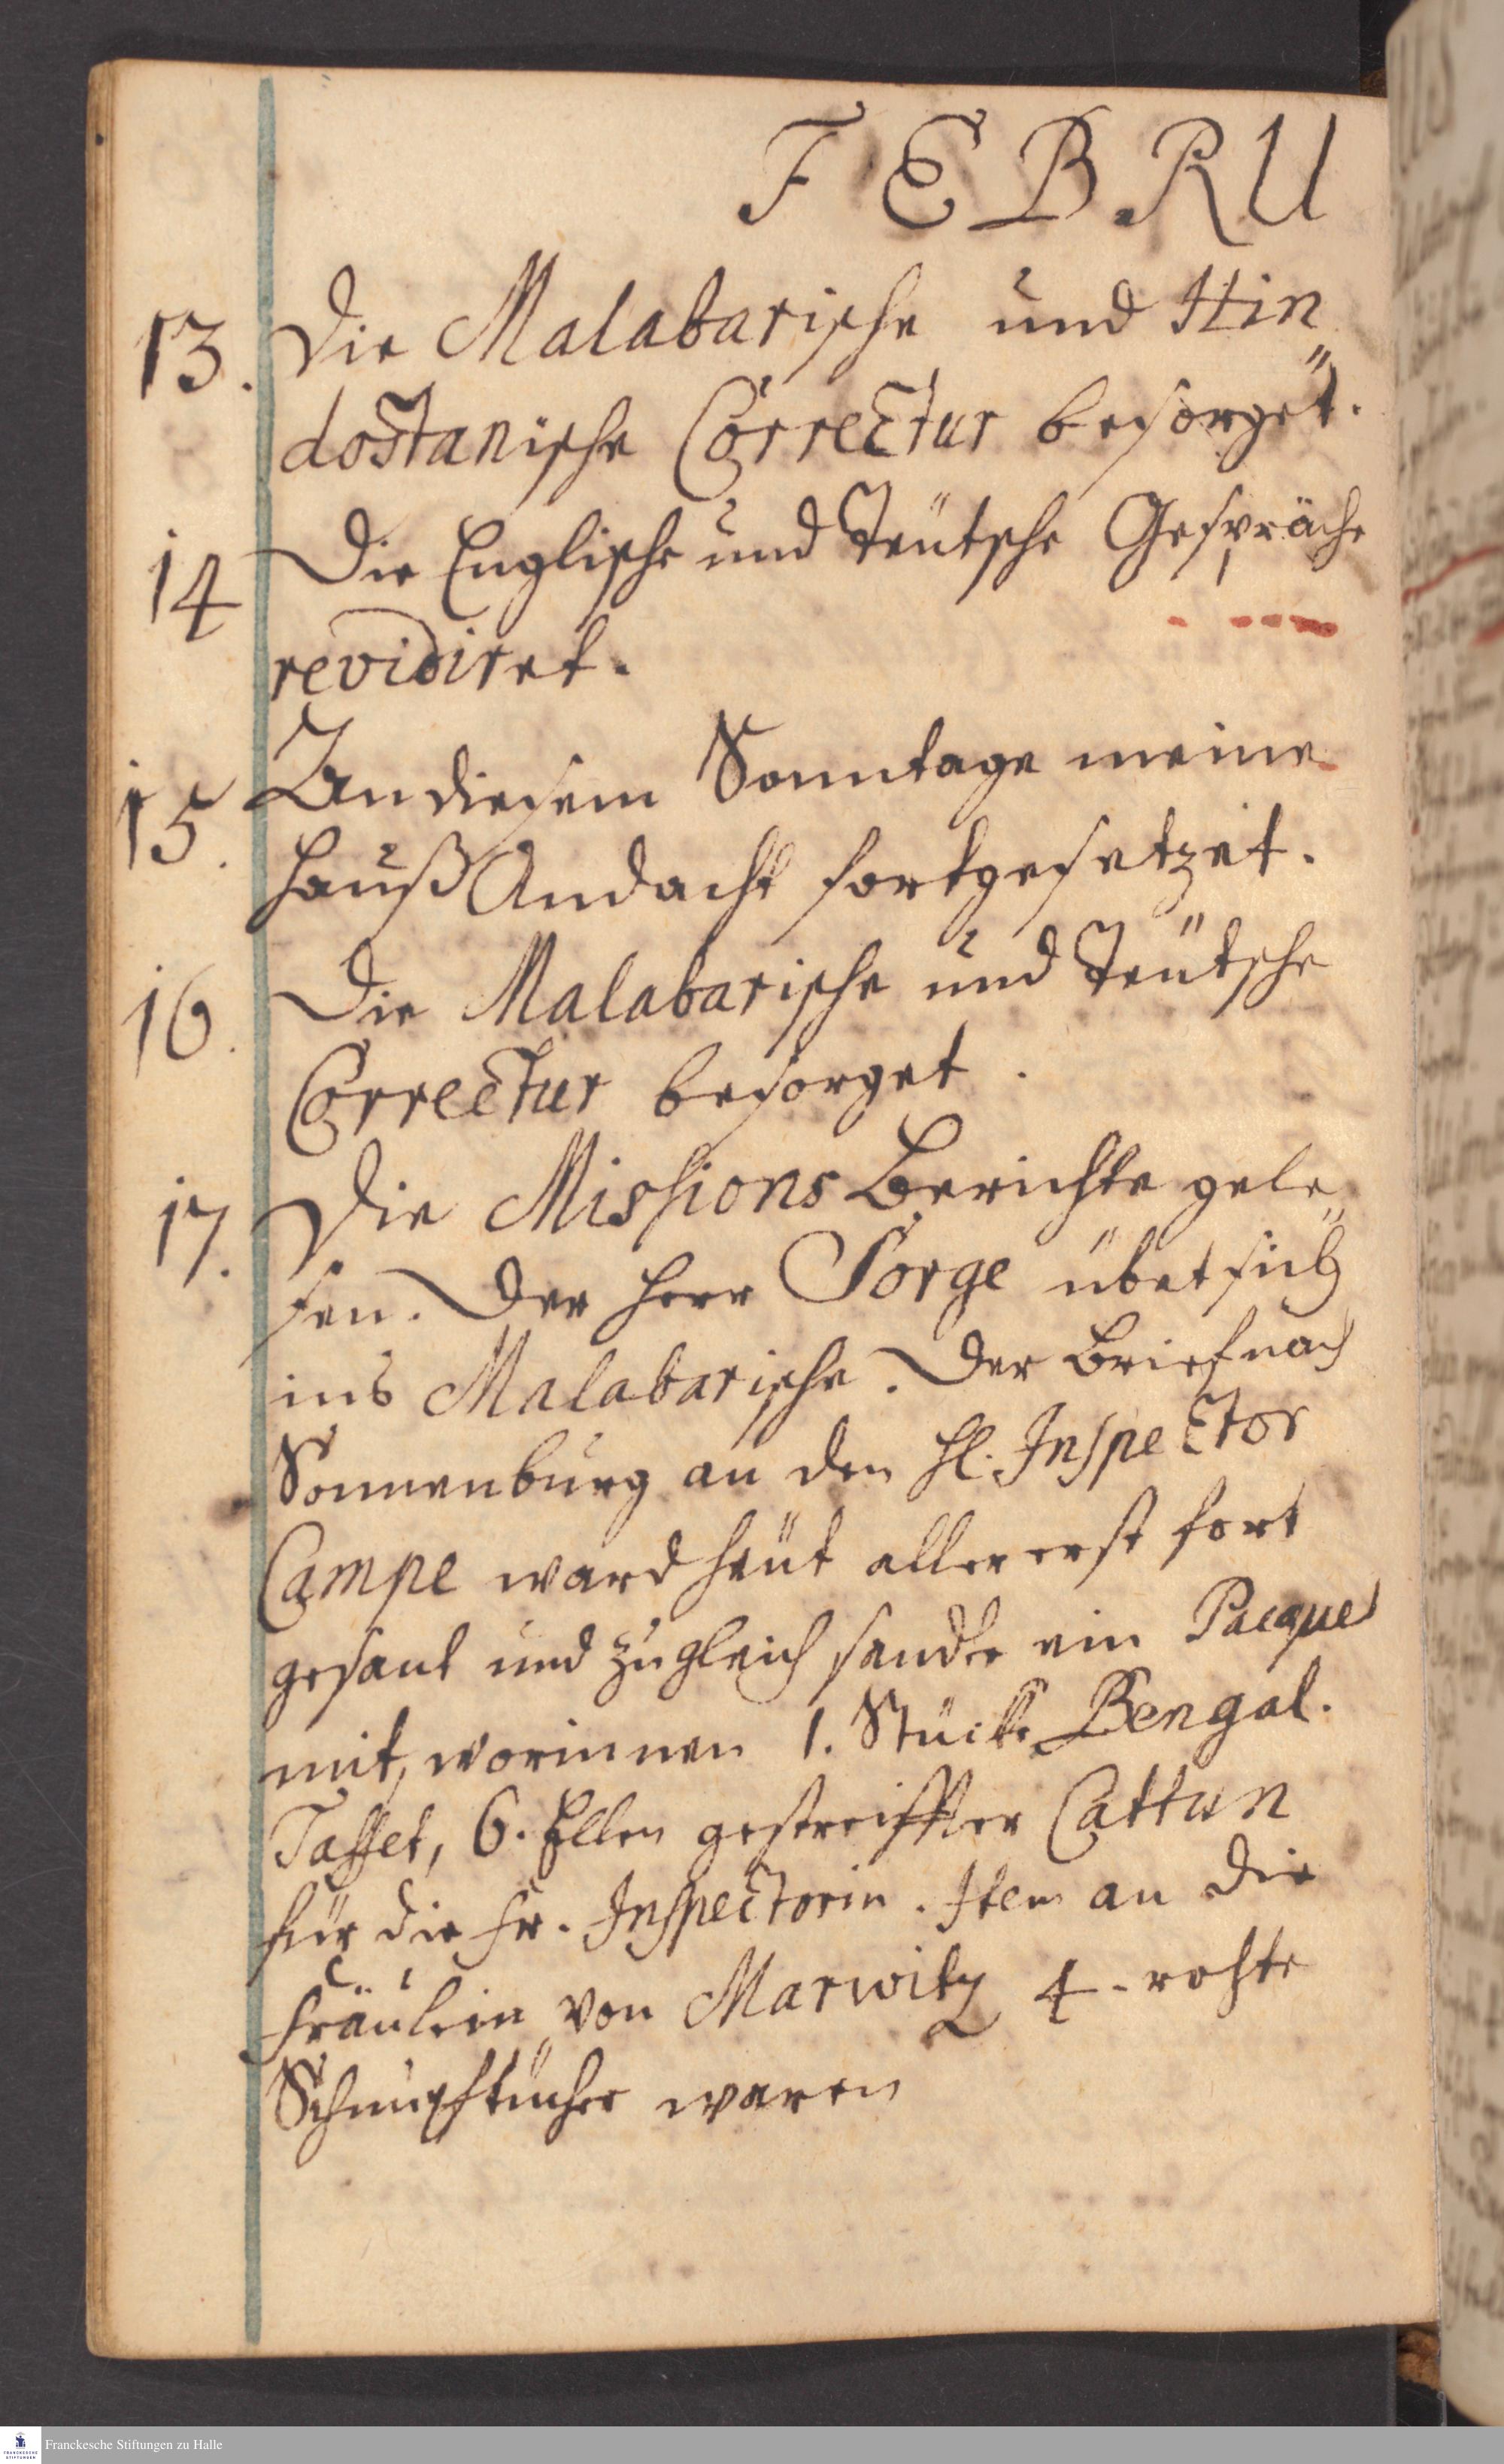 FEBRU
13. Die Malabarische und Hin„
dostanische Correctur besorget.
14 Die Englische und Teütsche Gespräche
revidiret.
15. An diesem Sonntage meine
Hauß Andacht fortgesetzet.
16. Die Malabarische und Teütsche
Correctur besorget.
17. Die Missions Berichte gele„
sen. Der Herr Sorge übet sich
ins Malabarische. Der Brief nach
Sonnenburg an den H. Inspector
Campe ward heüt aller erst fort
gesant und zugleich sandte ein Pacquet
mit, worinnen 1. Stück Bengal.
Taffet, 6. Ellen gestreiffter Cattun
für die Fr. Inspectorin. Item an die
Fräulein von Marwitz 4. rohte
Schnupftücher waren
Franckesche Stiftungen zu Halle
FRANCKESCHE
STIFTUNGEN